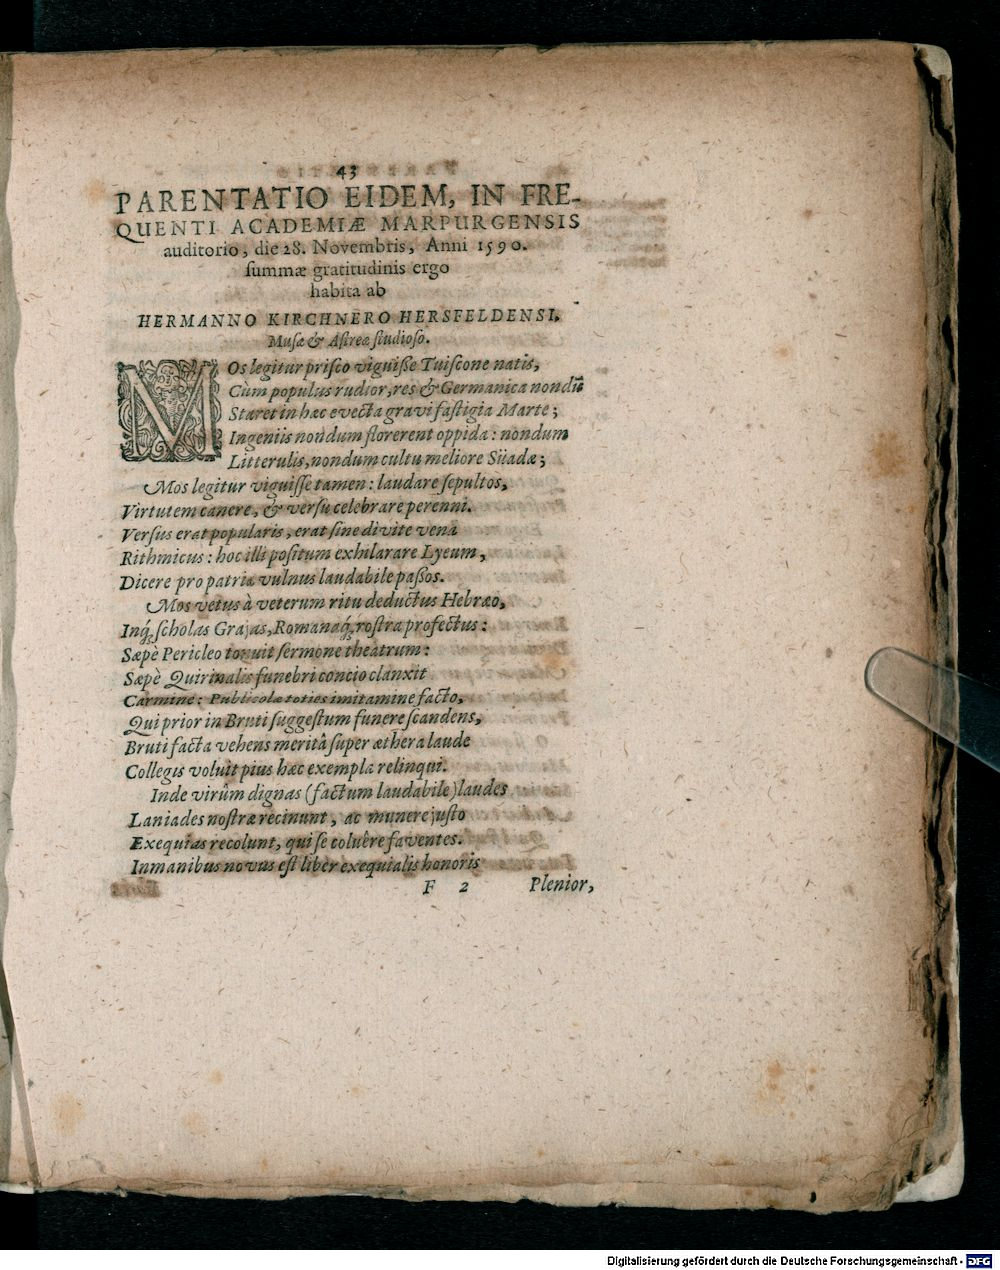 43
PARENTATIO EIDEM, IN FRE-
QUENTI ACADEMIÆ MARPURGENSIS
auditorio, die 28. Novembris, Anni 1590.
summæ gratitudinis ergo
habita ab
HERMANNO KIRCHNERO HERSFELDENSI,
Musæ & Astreæ studioso.
MOs legitur prisco viguisse Tuiscone natis,
Cùm populus rudior, res & Germanica nondũ
Staret in hæc evecta gravi fastigia Marte;
Ingeniis nondum florerent oppida: nondum
Litterulis, nondum cultu meliore Süadæ;
Mos legitur viguisse tamen: laudare sepultos,
Virtutem canere, & versu celebrare perenni.
Versus erat popularis, erat sine divite venâ
Rithmicus: hoc illi positum exhilarare Lyæum,
Dicere pro patriæ vulnus laudabile passos.
Mos vetus à veterum ritu deductus Hebræo,
Inq́; scholas Grajas, Romanaq́; rostra profectus:
Sæpè Pericleo tonuit sermone theatrum:
Sæpè Quirinalis funebri concio clanxit
Carmine: Publicolæ toties imitamine facto,
Qui prior in Bruti suggestum funere scandens,
Bruti facta vehens meritâ super æthera laude
Collegis voluit pius hæc exempla relinqui.
Inde virûm dignas (factum laudabile) laudes
Laniades nostræ recinunt, ac munere justo
Exequias recolunt, qui se coluêre faventes.
In manibus novus est liber exequialis honoris
F 2 Plenior,
Digitalisierung gefördert durch die Deutsche Forschungsgemeinschaft - DFG